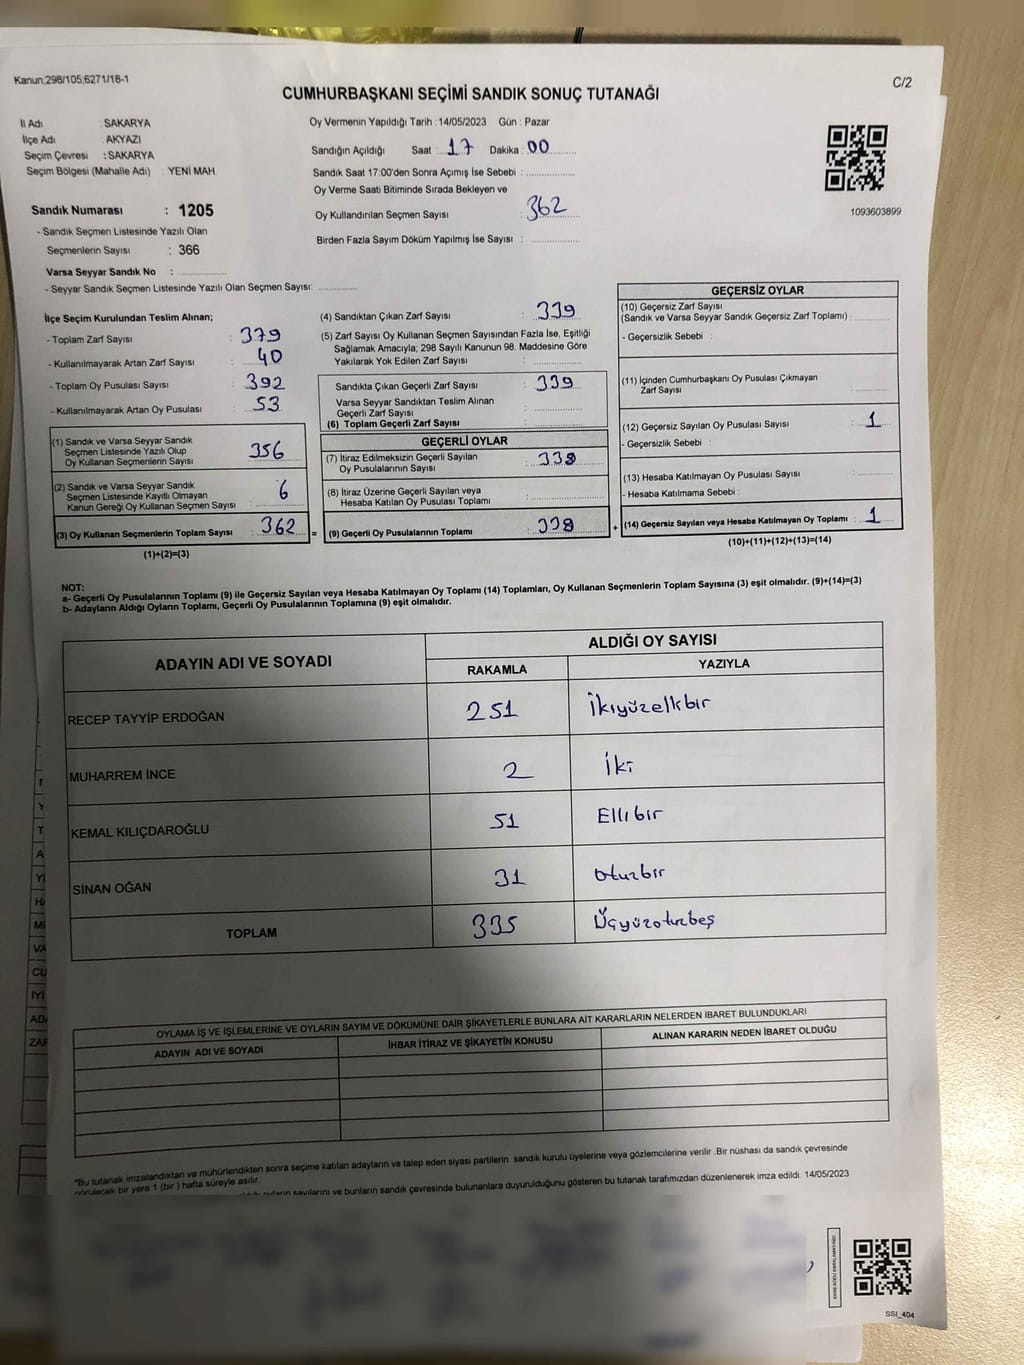 Kanun,298/105,6271/18-1
C/2
CUMHURBAŞKANI SEÇİMİ SANDIK SONUÇ TUTANAĞI
İl Adı : SAKARYA
İlçe Adı : AKYAZI
Seçim Çevresi : SAKARYA
Seçim Bölgesi (Mahalle Adı) : YENİ MAH
Sandık Numarası : 1205
- Sandık Seçmen Listesinde Yazılı Olan
Seçmenlerin Sayısı : 366
Varsa Seyyar Sandık No :
- Seyyar Sandık Seçmen Listesinde Yazılı Olan Seçmen Sayısı:
Oy Vermenin Yapıldığı Tarih :14/05/2023 Gün : Pazar
Sandığın Açıldığı Saat : 17 Dakika : 00
Sandık Saat 17:00'den Sonra Açımış İse Sebebi :
Oy Verme Saati Bitiminde Sırada Bekleyen ve
Oy Kullandırılan Seçmen Sayısı : 362
Birden Fazla Sayım Döküm Yapılmış İse Sayısı :
1093603899
İlçe Seçim Kurulundan Teslim Alınan;
- Toplam Zarf Sayısı : 379
- Kullanılmayarak Artan Zarf Sayısı : 40
- Toplam Oy Pusulası Sayısı : 392
- Kullanılmayarak Artan Oy Pusulası : 53
(1) Sandık ve Varsa Seyyar Sandık
Seçmen Listesinde Yazılı Olup
Oy Kullanan Seçmenlerin Sayısı : 356
(2) Sandık ve Varsa Seyyar Sandık
Seçmen Listesinde Kayıtlı Olmayan
Kanun Gereği Oy Kullanan Seçmen Sayısı : 6
(3) Oy Kullanan Seçmenlerin Toplam Sayısı : 362 =
(1)+(2)=(3)
(4) Sandıktan Çıkan Zarf Sayısı : 339
(5) Zarf Sayısı Oy Kullanan Seçmen Sayısından Fazla İse, Eşitliği
Sağlamak Amacıyla; 298 Sayılı Kanunun 98. Maddesine Göre
Yakılarak Yok Edilen Zarf Sayısı :
Sandıkta Çıkan Geçerli Zarf Sayısı : 339
Varsa Seyyar Sandıktan Teslim Alınan
Geçerli Zarf Sayısı :
(6) Toplam Geçerli Zarf Sayısı :
GEÇERLİ OYLAR
(7) İtiraz Edilmeksizin Geçerli Sayılan
Oy Pusulalarının Sayısı : 338
(8) İtiraz Üzerine Geçerli Sayılan veya
Hesaba Katılan Oy Pusulası Toplamı :
(9) Geçerli Oy Pusulalarının Toplamı : 338 +
GEÇERSİZ OYLAR
(10) Geçersiz Zarf Sayısı
(Sandık ve Varsa Seyyar Sandık Geçersiz Zarf Toplamı) :
- Geçersizlik Sebebi :
(11) İçinden Cumhurbaşkanı Oy Pusulası Çıkmayan
Zarf Sayısı :
(12) Geçersiz Sayılan Oy Pusulası Sayısı : 1
- Geçersizlik Sebebi :
(13) Hesaba Katılmayan Oy Pusulası Sayısı :
- Hesaba Katılmama Sebebi :
(14) Geçersiz Sayılan veya Hesaba Katılmayan Oy Toplamı : 1
(10)+(11)+(12)+(13)=(14)
NOT:
a- Geçerli Oy Pusulalarının Toplamı (9) ile Geçersiz Sayılan veya Hesaba Katılmayan Oy Toplamı (14) Toplamları, Oy Kullanan Seçmenlerin Toplam Sayısına (3) eşit olmalıdır. (9)+(14)=(3)
b- Adayların Aldığı Oyların Toplamı, Geçerli Oy Pusulalarının Toplamına (9) eşit olmalıdır.
ADAYIN ADI VE SOYADI ALDIĞI OY SAYISI
RAKAMLA YAZIYLA
RECEP TAYYİP ERDOĞAN 251 İkiyüzelkbir
MUHARREM İNCE 2 İki
KEMAL KILIÇDAROĞLU 51 Ellibir
SİNAN OĞAN 31 Otuzbir
TOPLAM 335 Üçyüzotuzbeş
OYLAMA İŞ VE İŞLEMLERİNE VE OYLARIN SAYIM VE DÖKÜMÜNE DAİR ŞİKAYETLERLE BUNLARA AİT KARARLARIN NELERDEN İBARET BULUNDUKLARI
ADAYIN ADI VE SOYADI İHBAR İTİRAZ VE ŞİKAYETİN KONUSU ALINAN KARARIN NEDEN İBARET OLDUĞU
*Bu tutanak imzalandıktan ve mühürlendikten sonra seçime katılan adayların ve talep eden siyasi partilerin sandık kurulu üyelerine veya gözlemcilerine verilir .Bir nüshası da sandık çevresinde
görülecek bir yere 1 (bir ) hafta süreyle asılır.
oyların sayılarını ve bunların sandık çevresinde bulunanlara duyurulduğunu gösteren bu tutanak tarafımızdan düzenlenerek imza edildi. 14/05/2023
SSI_404